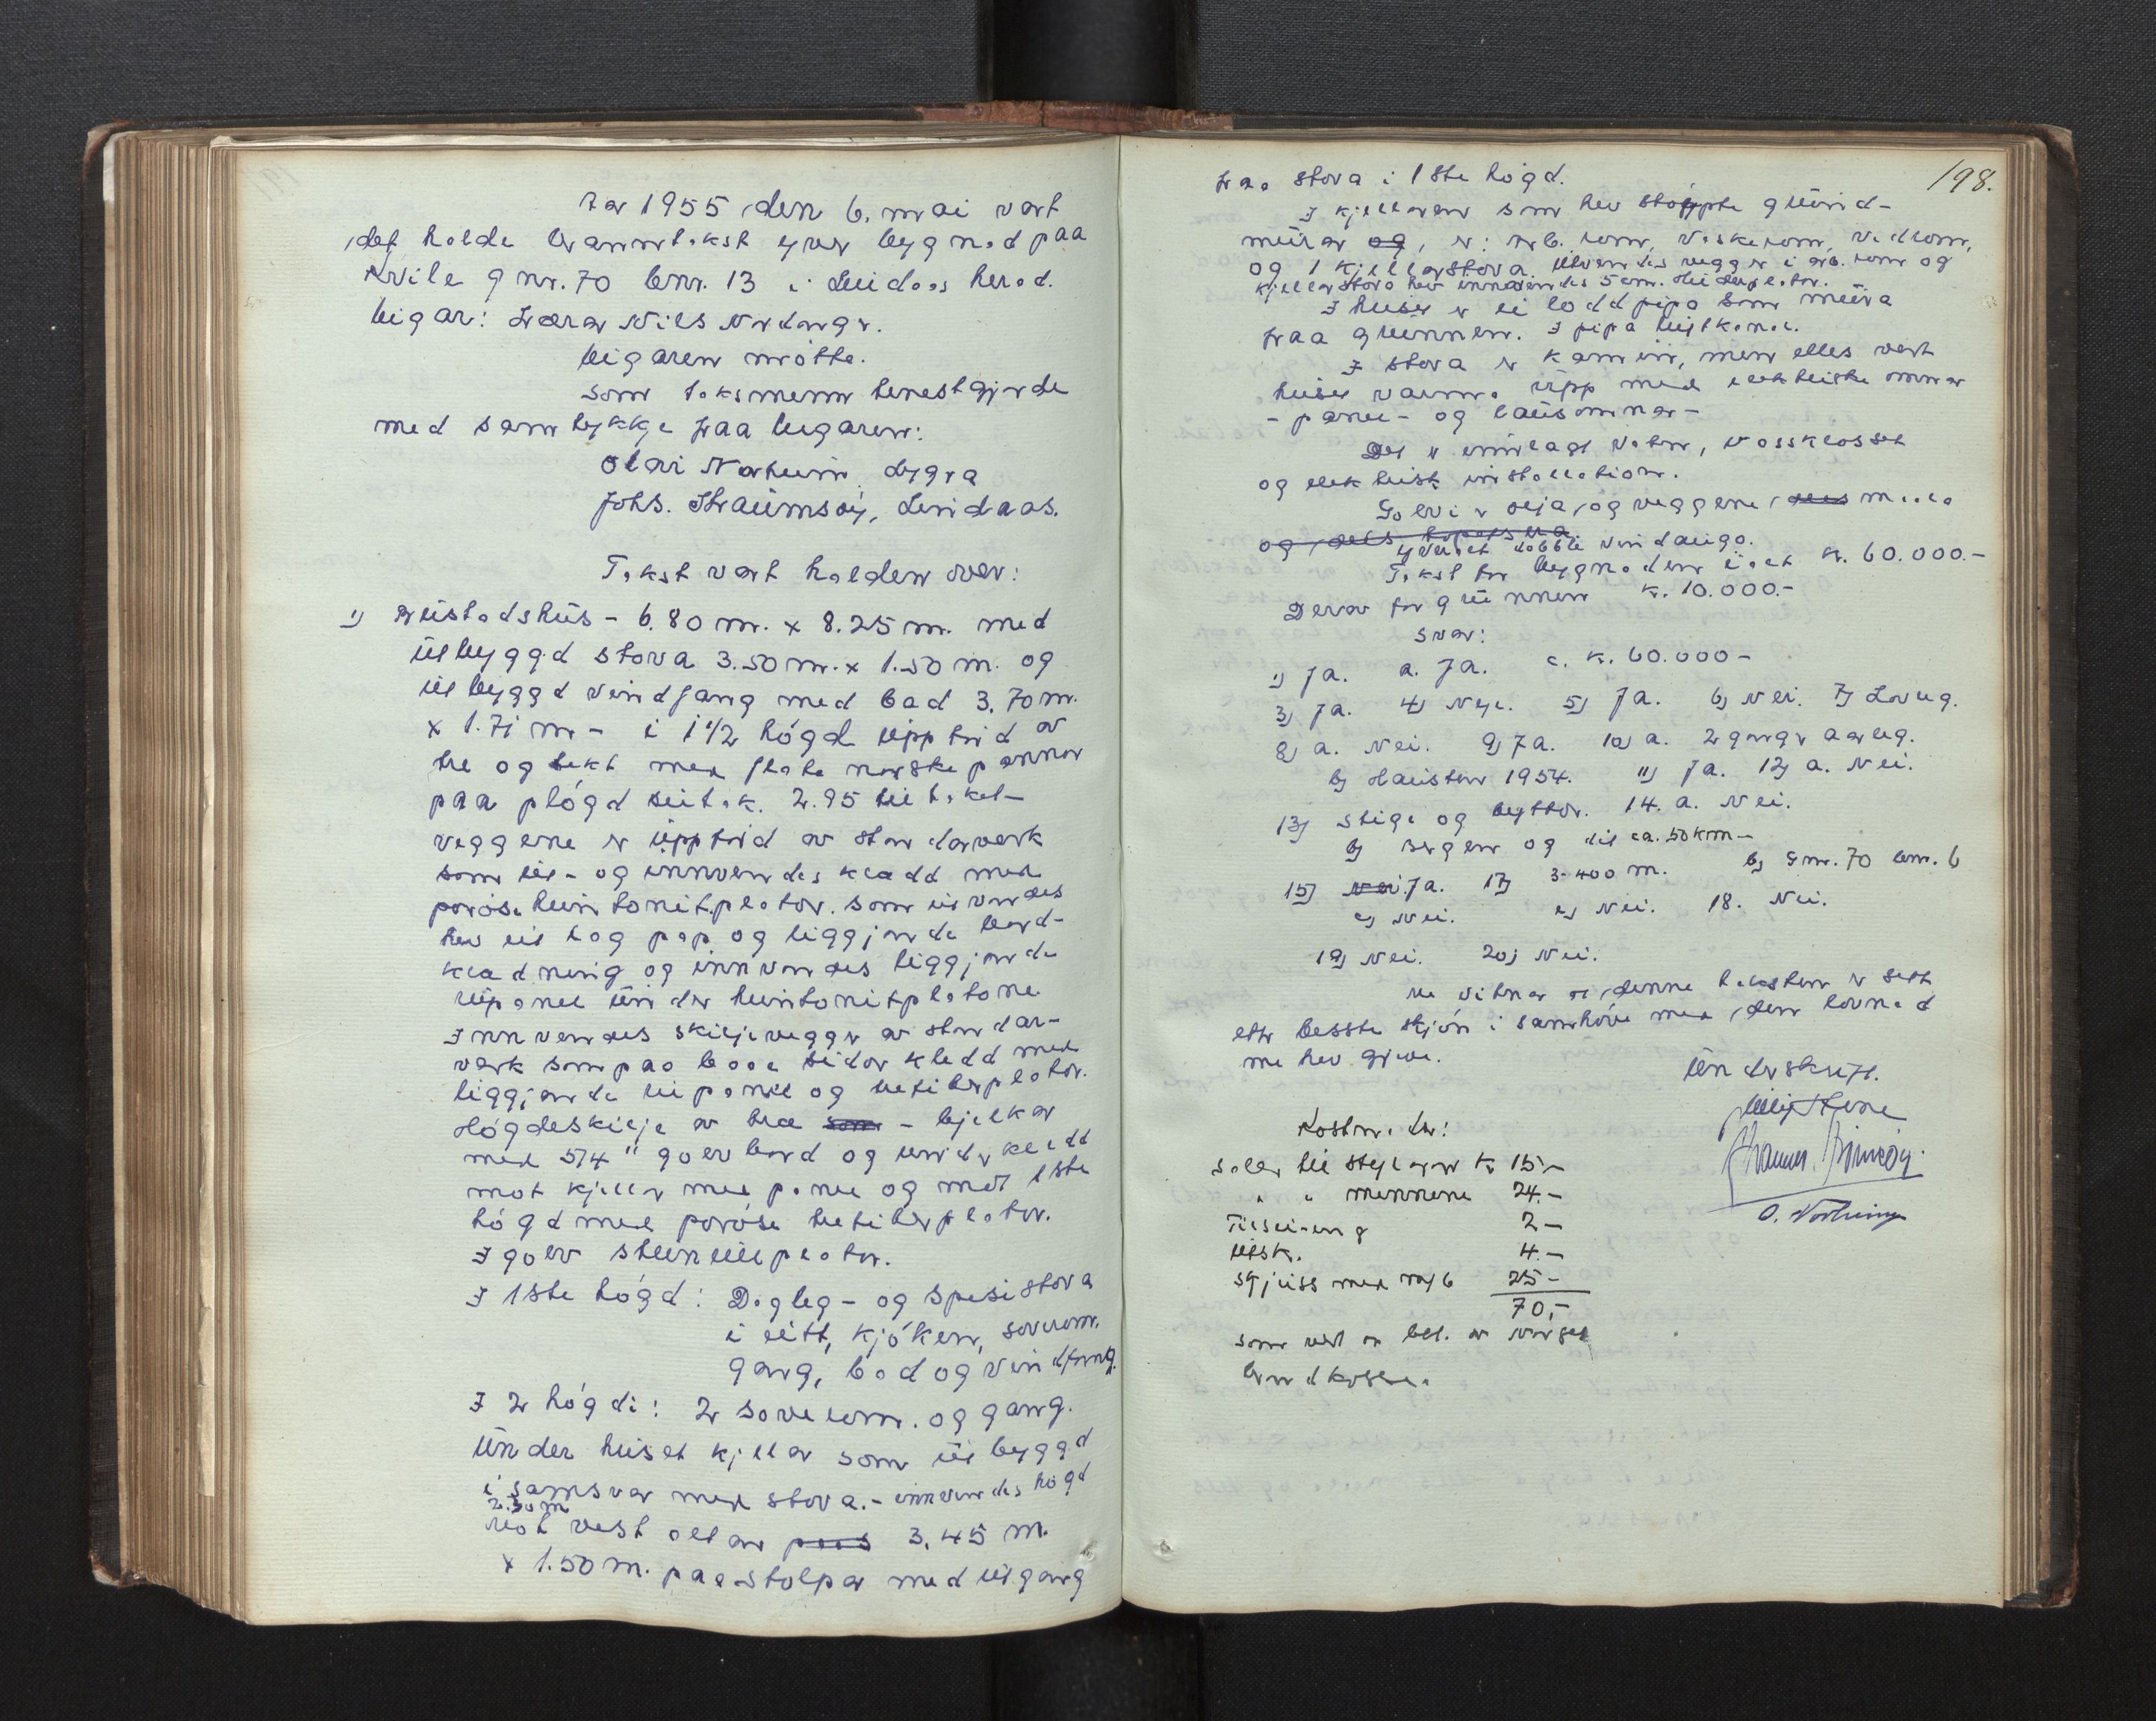 Aar 1955 den 6. mai vart
det halde branntakst yver bygnad paa
Kvile gnr. 70 bnr. 13 i Lindaas herad.
Eigar: Lærar Nils Nordanger.
Eigaren møtte.
Som taksmenn tenestgjorde
med samtykkje fraa eigaren:
Olai Norheim, Lygra
Johs. Straumsøy, Lindaas.
Takst vart halden over:
1) Bustadshus - 6.80 m. x 8.25 m. med
utbyggd stova 3.50 m. x 1.50 m. og
utbyggd vindfang med bad 3.70 m.
x 1.71 m - i 1 1/2 høgd uppførd av
tre og tekt med flate norske pannor
paa pløgd sutak. 2.95 til taket -
veggene er uppførd av standarverk
som ut- og innvendes kledd med
porøse huntonitplator. som utvendes
hev eit lag pap og liggjande bord-
kledning og innvendes liggjande
rupanel under huntonitplatone
Innvendes skiljevegger av standar-
verk som paa baae sidor kledd med
liggjande rupanel og trefiberplator.
Høgdeskilje av tre som - bjelkar
med 5/4" golvbord og under kledd
mot kjellar med panel og mot 1ste
høgd med porøse trefiberplator.
I golv steinullplator.
I 1ste høgd: Dagleg- og Spisestova
i eitt, kjøken, soverom.
gang, bad og vindfang.
I 2 høgdi: 2 soverom. og gang.
Under huset kjellar som utbyggd
i samsvar med stova. - innvendes høgd
2.30 m
Mot vest altan paa 3.45 m.
x 1.50 m. paa stolpar med utgang
198.
fraa stova i 1ste høgd.
I kjellaren som hev støypte grunn-
murar og, er: Arb. rom, Vaskerom, Vedrom,
og 1 kjellarstova. Utvendes vegger i arb. rom og
kjellarstova hev innvendes 5 cm. plator.
I huset er ei loddpipa som mura
fraa grunnen. I pipa luftkanal.
I stova er kamin, men elles vert
huset varma upp med elektriske omnar
- panel- og lausomnar -
Det er innlagt vatn, vassklosset
og elektrisk installation.
Golvi er olja, og veggene, dels maala
og dels tapetsera
Yveralt dobble vindaugo.
Takst for bygnaden i alt kr. 60.000.-
Derav for grunnen kr. 10.000.-
Svar:
1) Ja. a. Ja. c. kr. 60.000 -
3) Ja. 4) Nye. 5) Ja. 6) Nei. 7) Lovleg.
8) a. Nei. 9) Ja. 10) a. 2 gonger aarleg.
b) Hausten 1954. 11) Ja. 12) a. Nei.
13) Stige og byttor. 14. a. Nei.
b) Bergen og dit ca. 50 km -
15) Nei. Ja. 17) 3-400 m. b) Gnr. 70 bnr. 6
c) Nei. c) Nei. 18. Nei.
19) Nei. 20) Nei.
Me vitnar at denne taksten er sett
etter besste skjøn i samhøve med den lovnad
me hev gjeve.
Underskrift.
O. Norheim
Kostnader:
Salær til styraren kr 15.-
" " mennene 24.-
Tilseiing 2 -
Utsk. 4.-
Skjuss med 25 -
70,-
som vert bet. av Norges
Brandkasse.